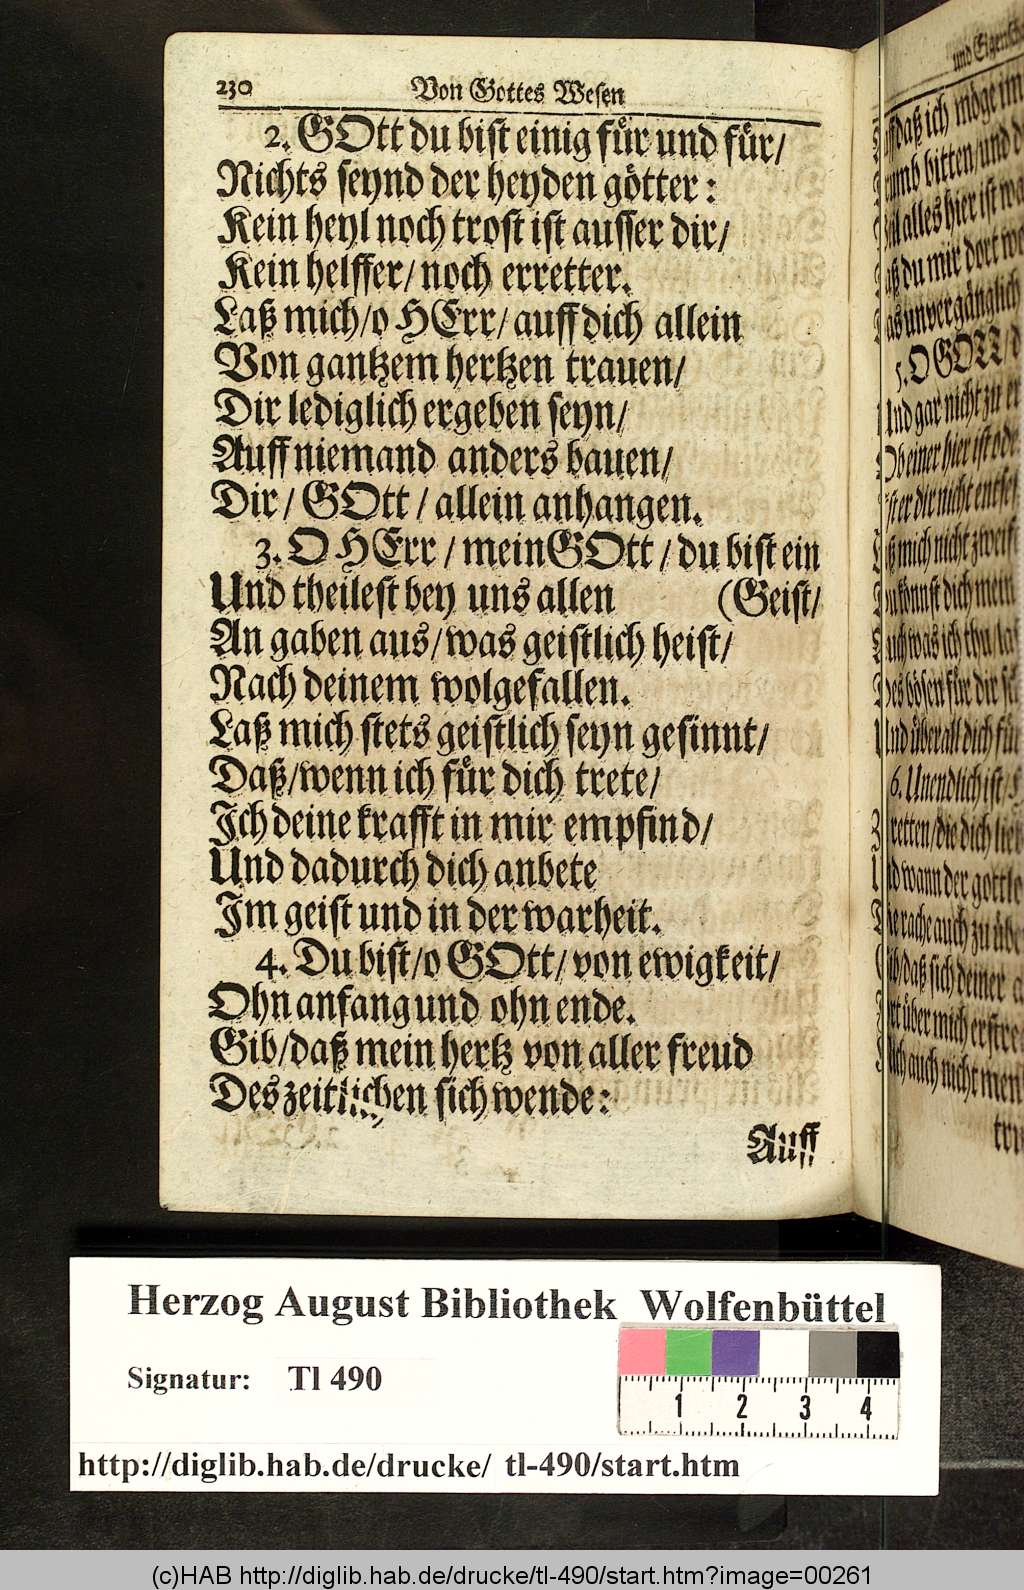 230 Von Gottes Wesen
2. GOtt du bist einig fuͤr und fuͤr/
Nichts seynd der heyden goͤtter:
Kein heyl noch trost ist ausser dir/
Kein helffer/ noch erretter.
Laß mich/ o HErr/ auff dich allein
Von gantzem hertzen trauen/
Dir lediglich ergeben seyn/
Auff niemand anders bauen/
Dir/ GOtt/ allein anhangen.
3. O HErr/ mein GOtt/ du bist ein
Und theilest bey uns allen (Geist/
An gaben aus/ was geistlich heist/
Nach deinem wolgefallen.
Laß mich stets geistlich seyn gesinnt/
Daß/ wenn ich fuͤr dich trete/
Ich deine krafft in mir empfind/
Und dadurch dich anbete
Im geist und in der warheit.
4. Du bist/ o GOtt/ von ewigkeit/
Ohn anfang und ohn ende.
Gib/ daß mein hertz von aller freud
Des zeitlichen sich wende:
Auff
und
daß ich moͤge im
bitten/ und
alles hier ist
du mir dort
unvergaͤnglich
5. O GOTT/
Und gar nicht zu
einer hier ist
dir nicht
mich nicht
konnst dich mein
was ich thu/
boͤsen fuͤr dir
uͤberall dich fuͤr
6. Unendlich ist/
retten/ die dich
wann der
rache auch zu
daß sich deiner
uͤber mich
auch nicht
Herzog August Bibliothek Wolfenbüttel
Signatur: Tl 490
1 2 3 4
http://diglib.hab.de/drucke/ tl-490/start.htm
(c)HAB http://diglib.hab.de/drucke/tl-490/start.htm?image=00261